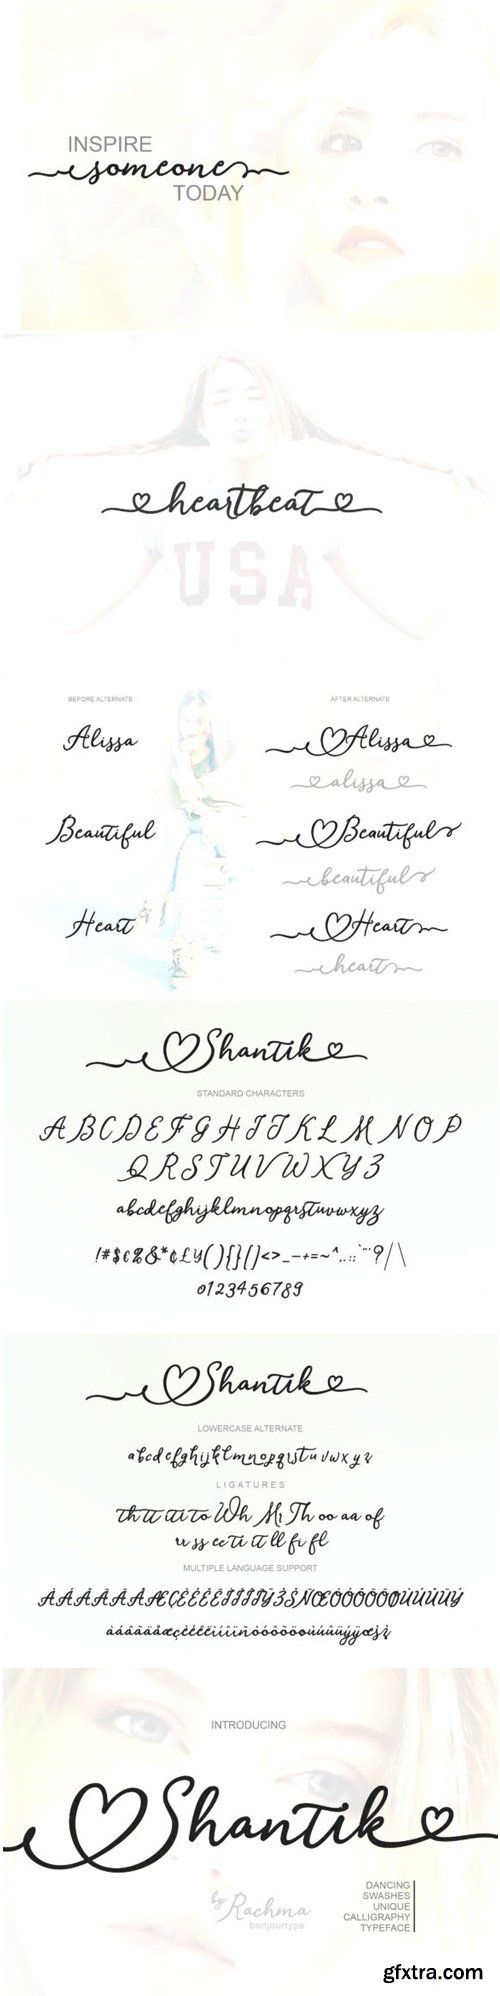 INSPIRE
someone
TODAY
heartbeat
USA
BEFORE ALTERNATE
AFTER ALTERNATE
Alissa
Alissa
alissa
Beautiful
Beautiful
beautiful
Heart
Heart
heart
Shantik
STANDARD CHARACTERS
ABCDEFGHIJKLMNOP
QRSTUVWXYZ
abcdefghijklmnopqrstuvwxyz
0123456789
Shantik
LOWERCASE ALTERNATE
abcdefghijklmnopqrstuvwxyz
LIGATURES
Wh Mr Th oo aa of
rr ss ee ll fi fl
MULTIPLE LANGUAGE SUPPORT
INTRODUCING
Shantik
by Rachma
bonjourtype
DANCING
SWASHES
UNIQUE
CALLIGRAPHY
TYPEFACE
gfxtra.com